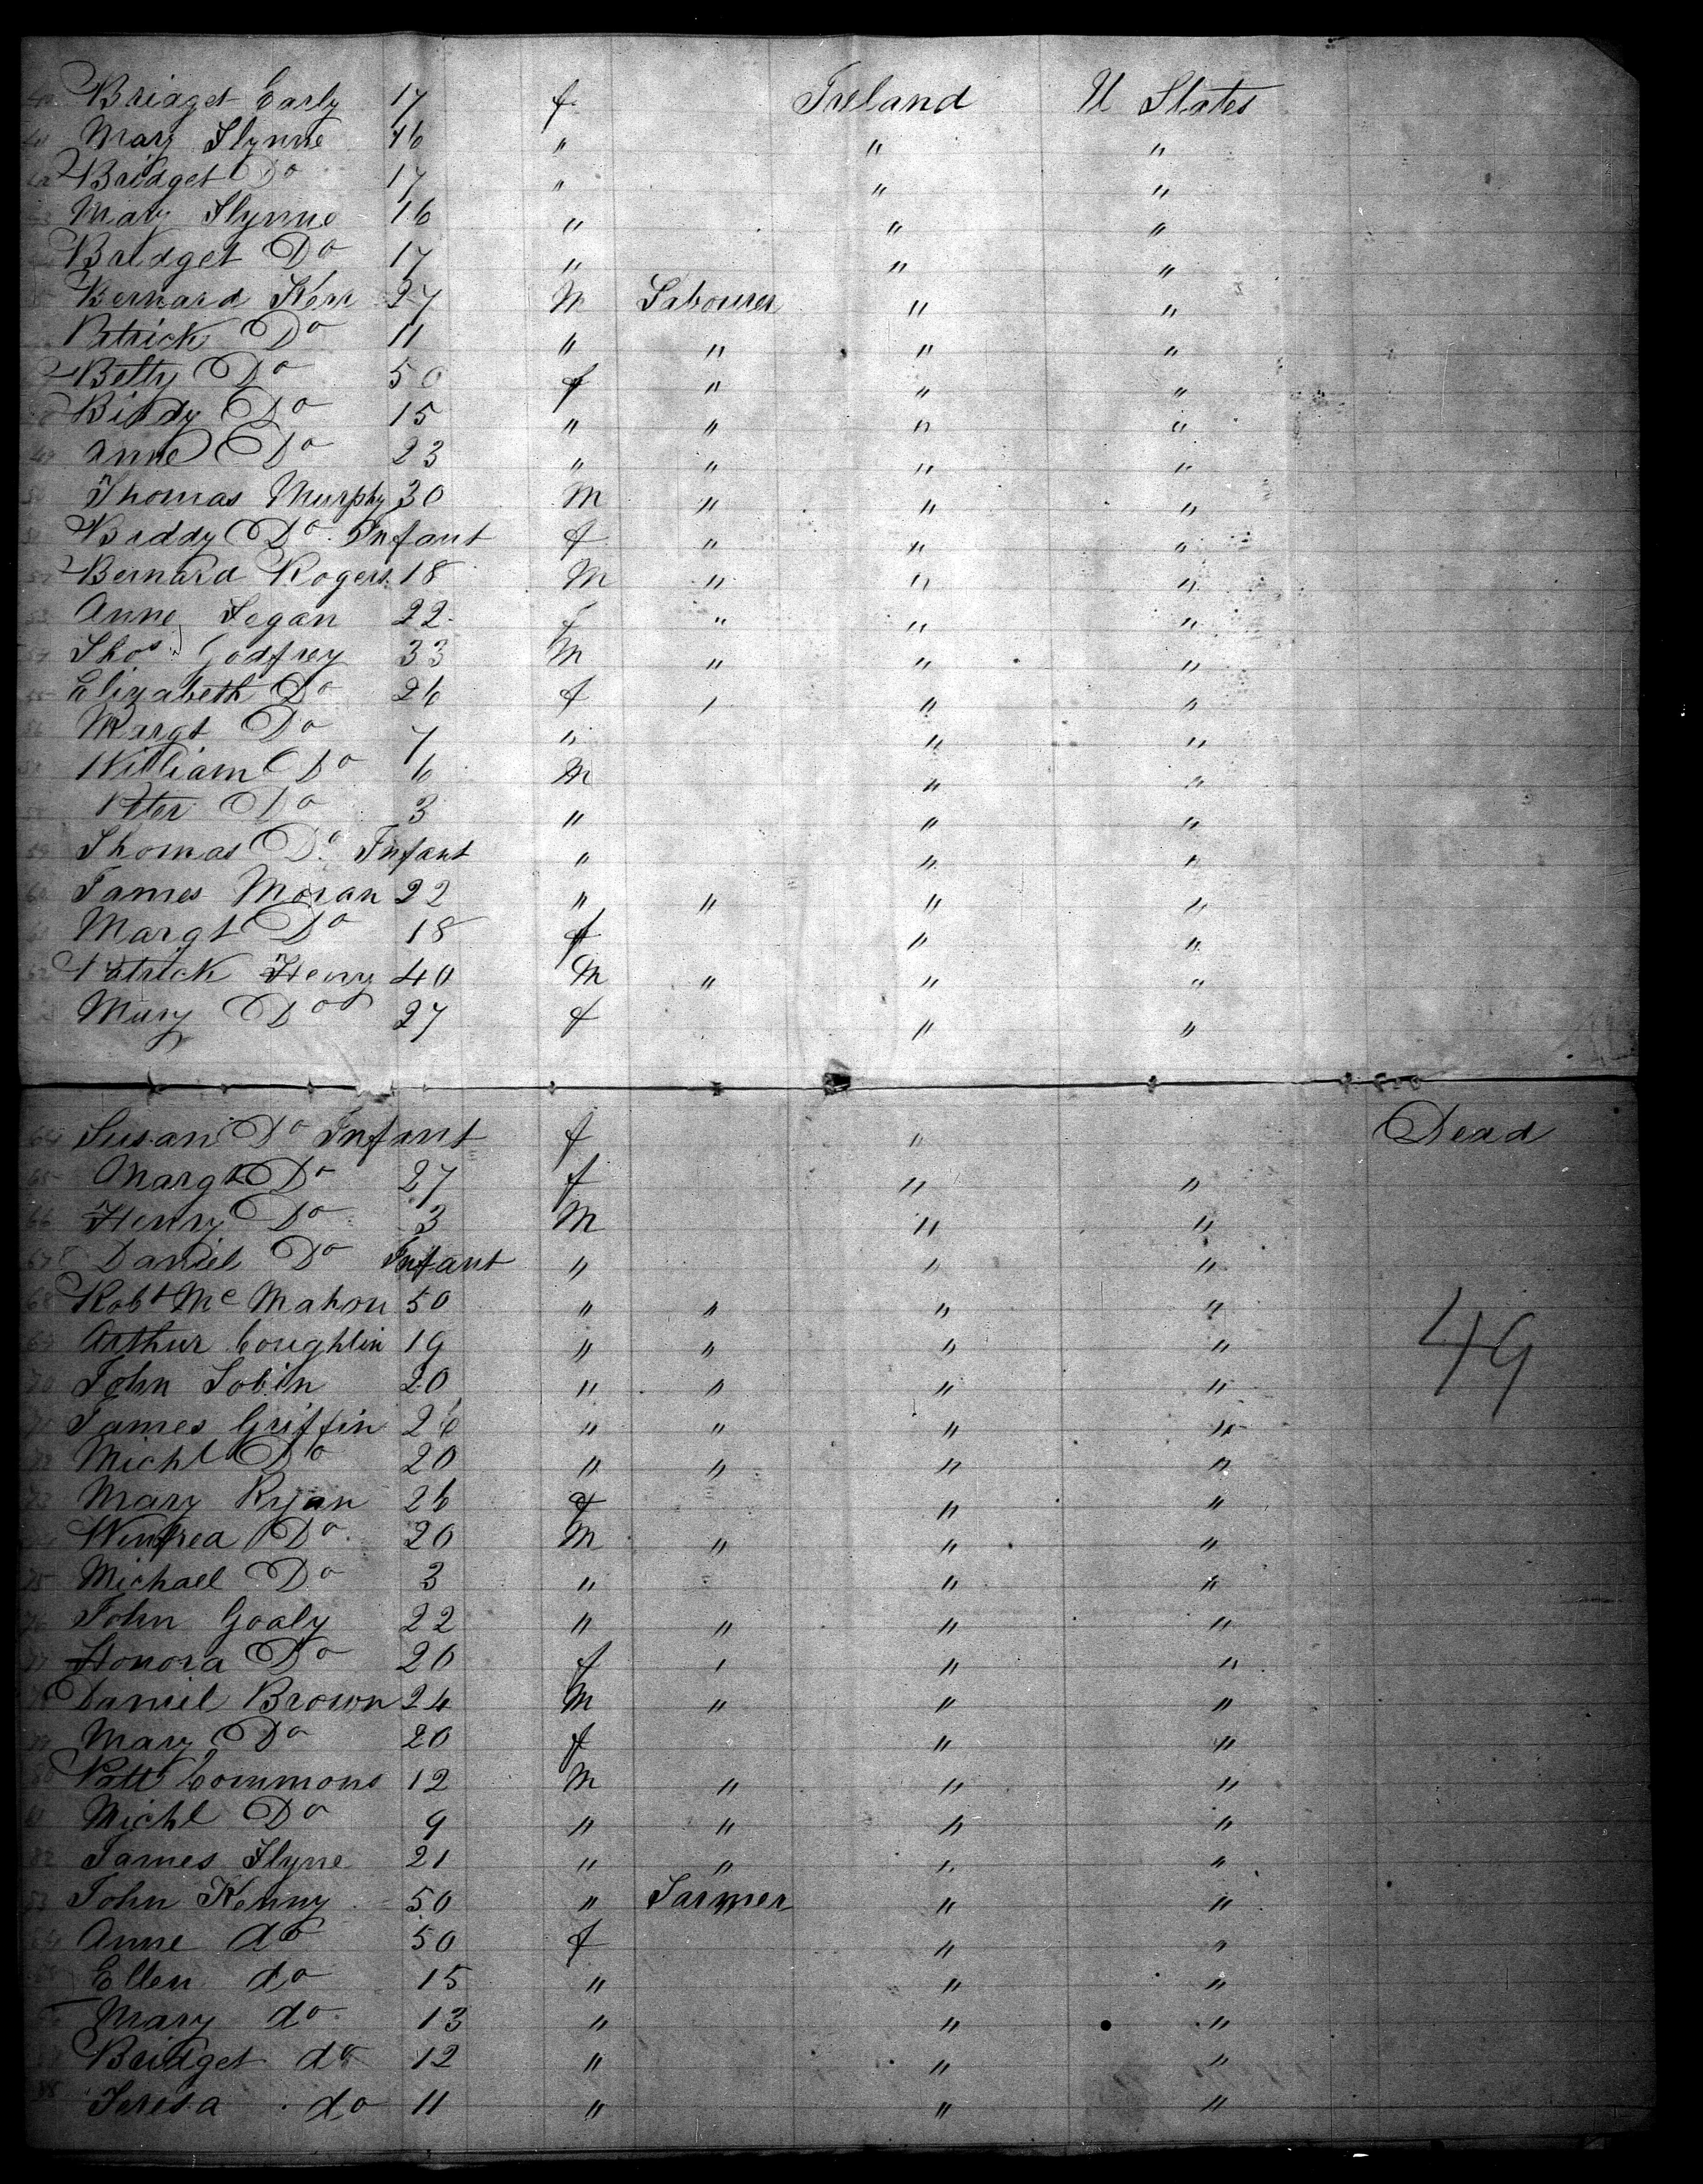 40 Bridget Early 17 f Ireland U States
41 Mary Flynne 16 " " "
42 Bridget Do 17 " " "
43 Mary Flynne 16 " " "
Bridget Do 17 " " "
Bernard Kerr 27 M Labourer " "
Patrick Do 11 " " " "
Betty Do 50 f " " "
Biddy Do 15 " " " "
49 Anne Do 23 " " " "
50 Thomas Murphy 30 M " " "
51 Biddy Do Infant f " " "
52 Bernard Rogers 18 M " " "
53 Anne Fegan 22 f " " "
54 Thos Godfrey 33 M " " "
55 Elizabeth Do 26 f " " "
56 Margt Do 7 " " "
William Do 6 M " "
Peter Do 3 " " "
59 Thomas Do Infant " " "
60 James Moran 22 " " " "
61 Margt Do 18 f " "
62 Patrick Henry 40 M " " "
Mary Do 27 f " "
64 Susan Do Infant f " Dead
65 Margt Do 27 f " "
66 Henry Do 3 M " "
67 Daniel Do Infant " " "
68 Robt Mc Mahon 50 " " " "
69 Arthur Coughlin 19 " " " "
49
70 John Tobin 20 " " " "
71 James Griffin 26 " " " "
72 Michl Do 20 " " " "
73 Mary Ryan 26 f " "
Winfrea Do 20 M " " "
75 Michael Do 3 " " "
76 John Goaly 22 " " " "
77 Honora Do 20 f " " "
78 Daniel Brown 24 M " " "
79 Mary Do 20 f " "
80 Patt Commons 12 M " " "
81 Michl Do 9 " " " "
82 James Flyne 21 " " " "
83 John Kenny 50 " Farmer " "
84 Anne do 50 f " "
Ellen do 15 " " "
Mary do 13 " " "
Bridget do 12 " " "
88 Teresa do 11 " " "